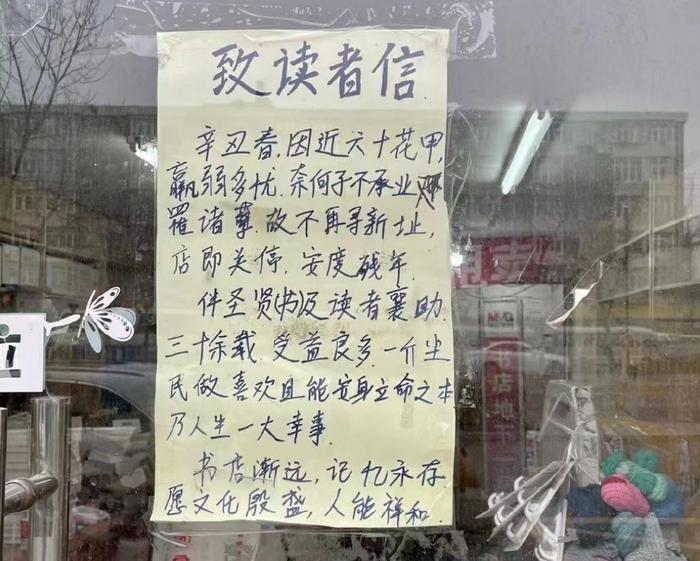 致读者信
辛丑春，因近六十花甲，
羸弱多忧，奈何子不承业，
罹诸孽，故不再寻新址，
店即关停，安度残年，
伴圣贤(书)及读者襄助，
三十余载，受益良多，一介尘
民做喜欢且能安身立命之本
乃人生一大幸事，
书店渐远，记忆永存，
愿文化殷盛，人能祥和，
M&G
书店地